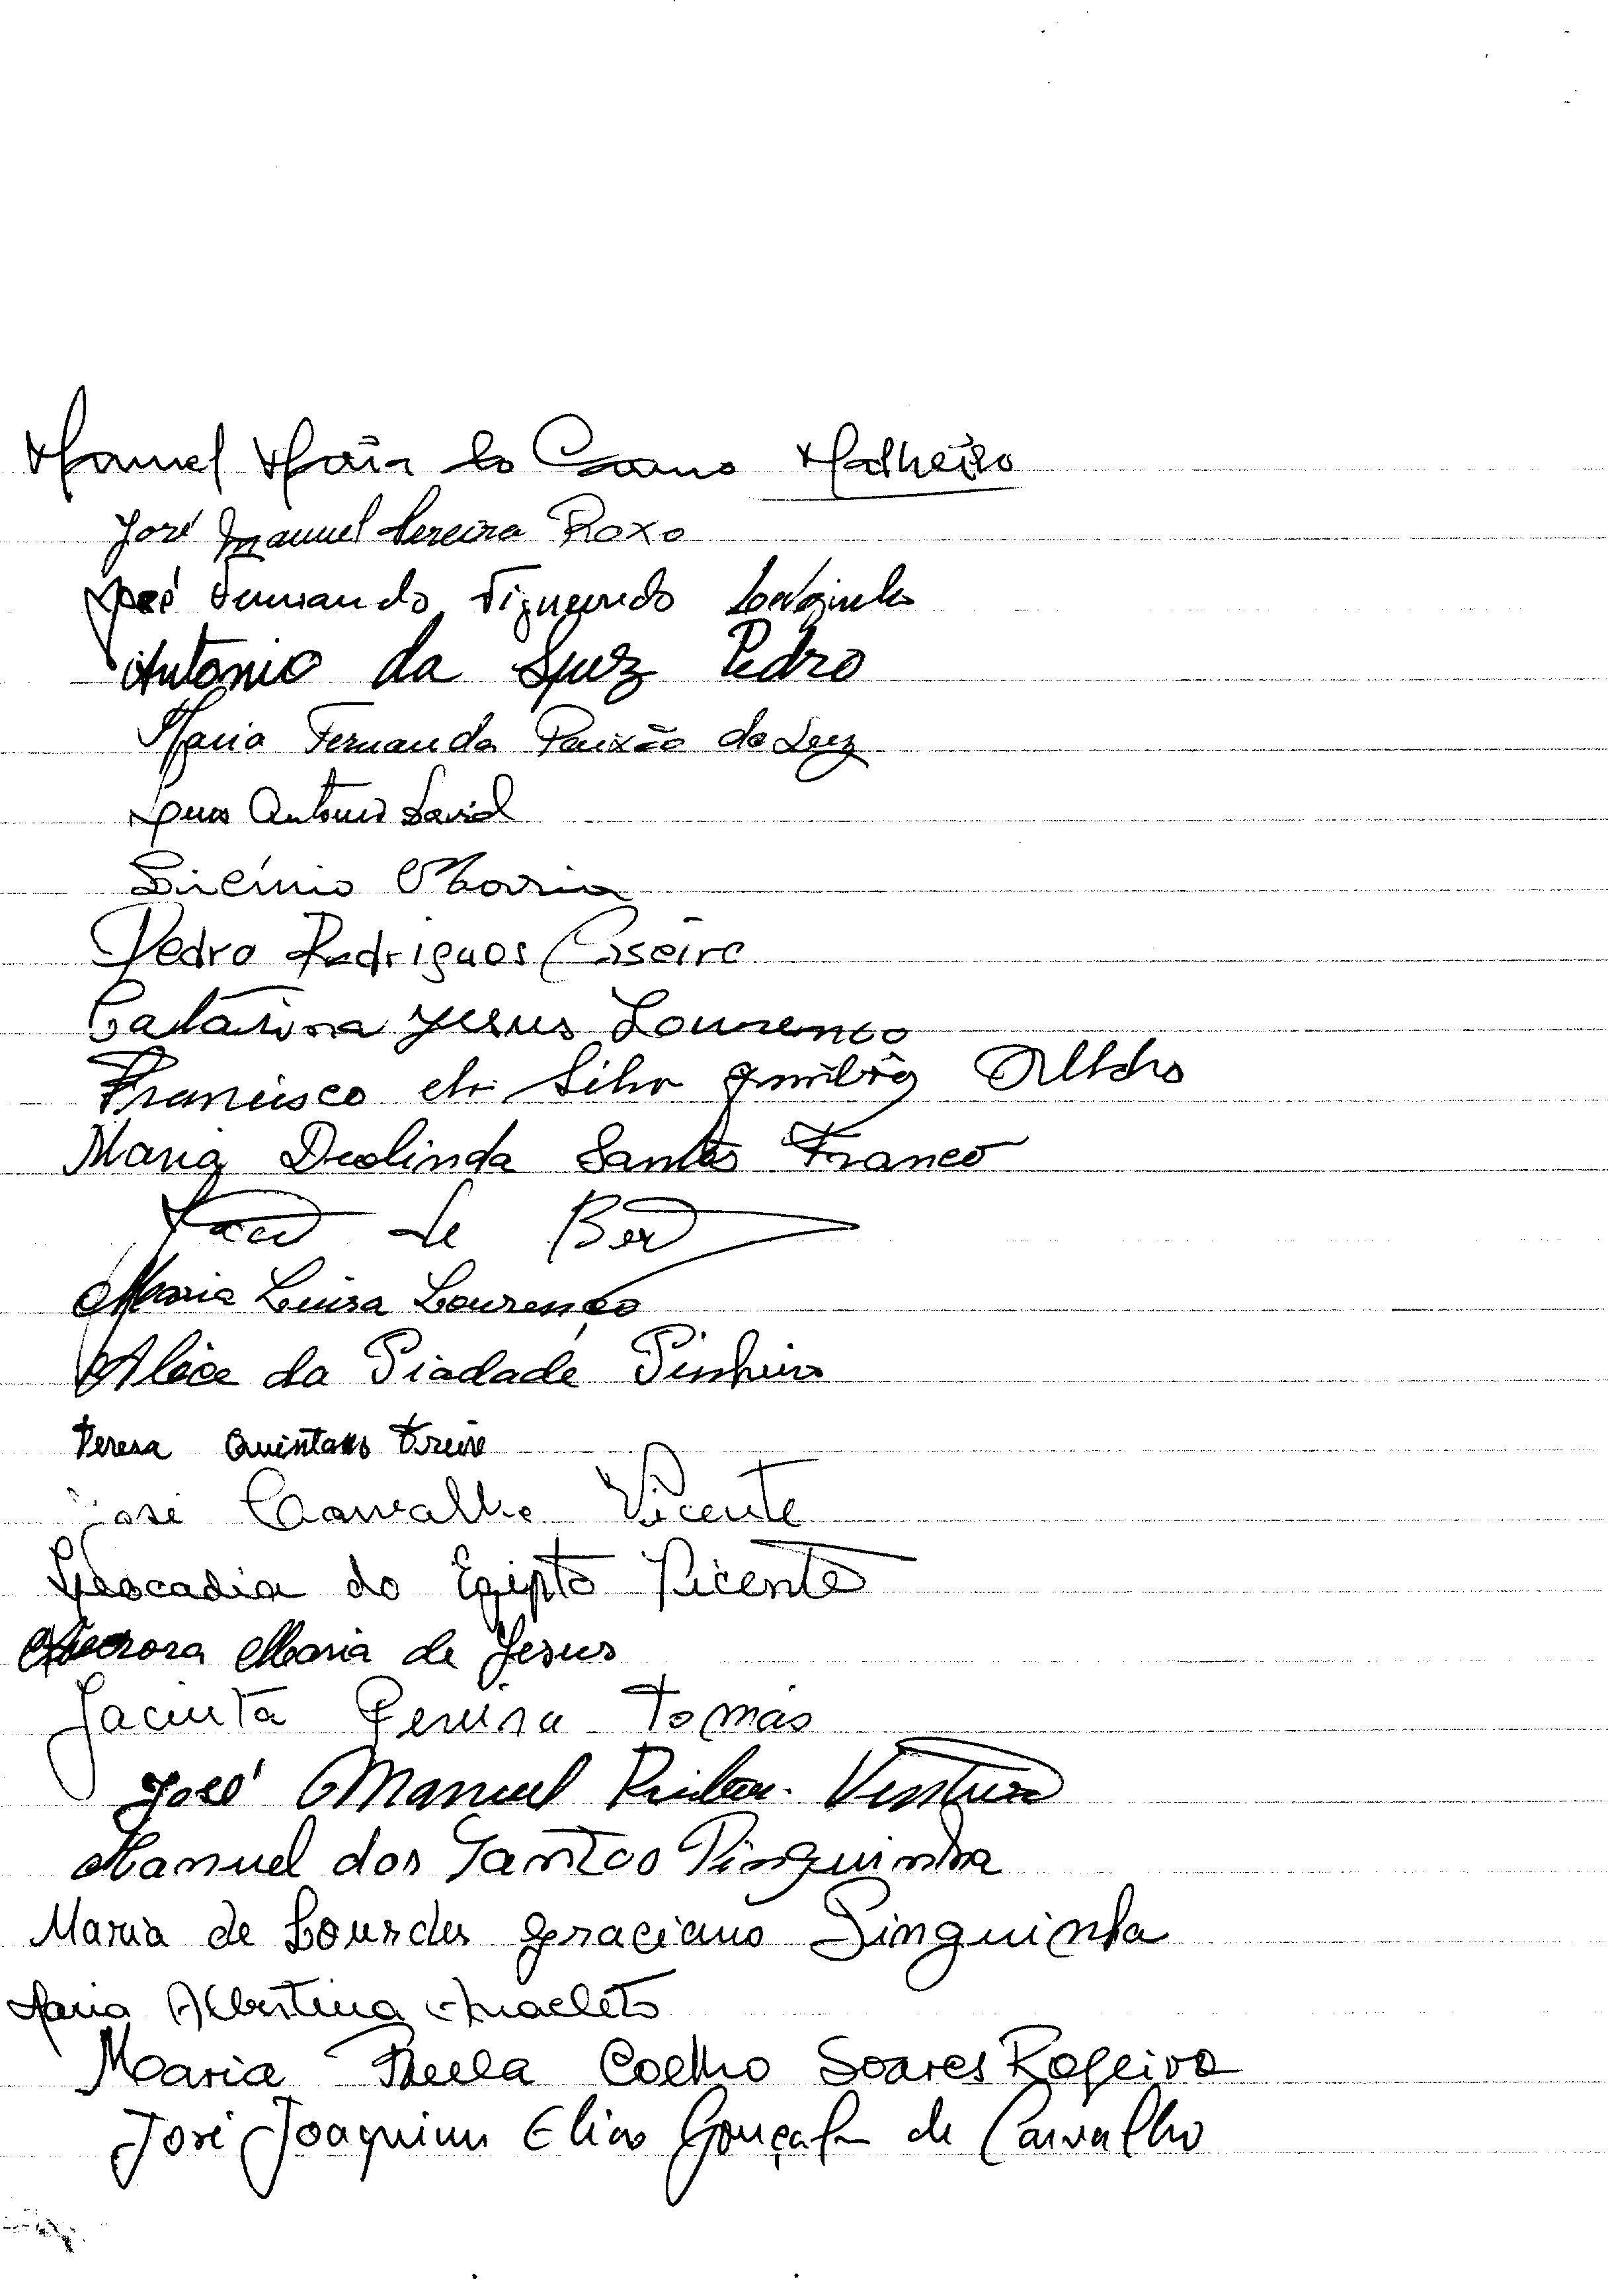 Manuel Maria do Carmo Malheiro
José Manuel Pereira Roxo
José Fernando Figueiredo
Antonio da Luz Pedro
Maria Fernanda Paixão da Luz
Luis Antonio David
Licínio Maria
Pedro Rodrigues Caseiro
Catarina Jesus Lourenco
Francisco da Silva
Maria Deolinda Santos Franco
Maria Luisa Lourenço
Alice da Piadade Pinheiro
Teresa Quintans Freire
José Carvalho Vicente
Leocadia do Egipto Vicente
Aurora Maria de Jesus
Jacinta Pereira Tomás
José Manuel Ventura
Manuel dos Santos Pinguinha
Maria de Lourdes Graciano Pinguinha
Maria Albertina Anacleto
Maria Paula Coelho Soares Rogeiro
José Joaquim Elias Gonçalves de Carvalho